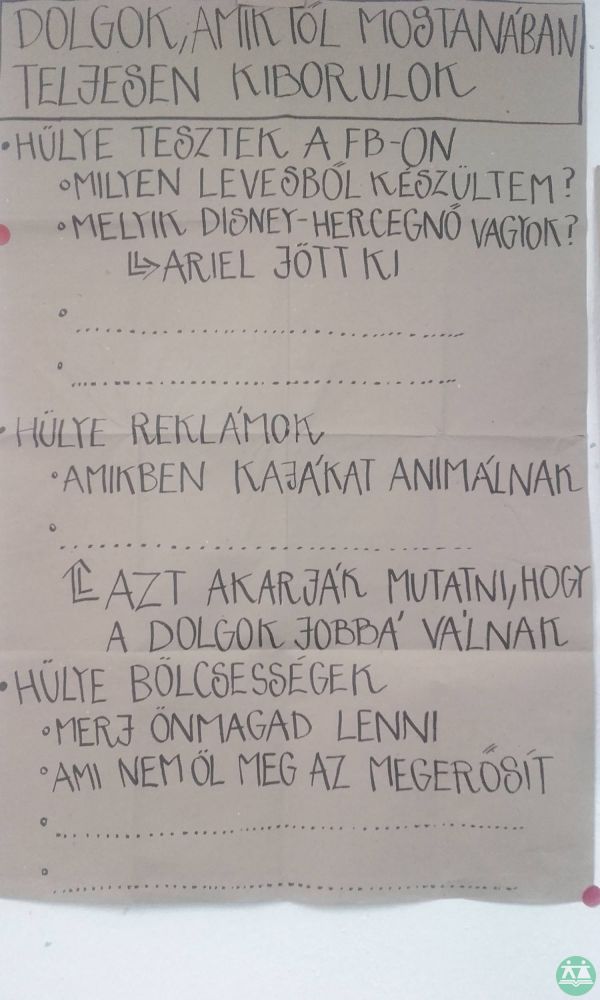 DOLGOK, AMIKTŐL MOSTANÁBAN
TELJESEN KIBORULOK
•HÜLYE TESZTEK A FB-ON
◦MILYEN LEVESBŐL KÉSZÜLTEM?
◦MELYIK DISNEY-HERCEGNŐ VAGYOK?
↳ARIEL JÖTT KI
◦..........
◦..........
•HÜLYE REKLÁMOK
◦AMIKBEN KAJÁKAT ANIMÁLNAK
◦..........
⇑AZT AKARJÁK MUTATNI, HOGY
A DOLGOK JOBBÁ VÁLNAK
•HÜLYE BÖLCSESSÉGEK
◦MERJ ÖNMAGAD LENNI
◦AMI NEM ÖL MEG AZ MEGERŐSÍT
◦..........
◦..........